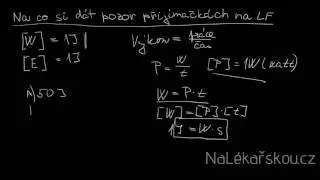 Na co si dát pozor přijímačkách na LF
[W] = 1J
[E] = 1J
A) 50 J
Výkon = práce / čas
P = W / t [P] = 1W (watt)
W = P · t
[W] = [P] · [t]
1J = W · s
NaLékařskou.cz